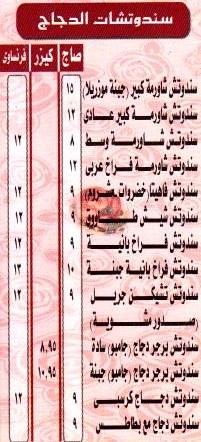 سندوتشات الدجاج
صاج كيزر فرنساوى
سندوتش شاورمة كبير (جبنة موزريلا) ١٥
سندوتش شاورمة كبير عادى ١٢
سندوتش شاورمة وسط ٨ ١٢
سندوتش شاورمة فراخ عربى ١٢
سندوتش فاهيتا (خضروات، مشروم) ٩ ١٢
سندوتش شيش طاووق ٩ ١٢
سندوتش فراخ بانية ٩ ١٢
سندوتش فراخ بانية جبنة ١٠ ١٣
سندوتش تشيكن جريل ٩ ١٢
(صدور مشوية)
سندوتش برجر دجاج (جامبو) سادة ٨,٩٥
سندوتش برجر دجاج (جامبو) جبنة ١٠,٩٥
سندوتش دجاج كرسبى ٩ ١٢
سندوتش دجاج مع بطاطس ٩